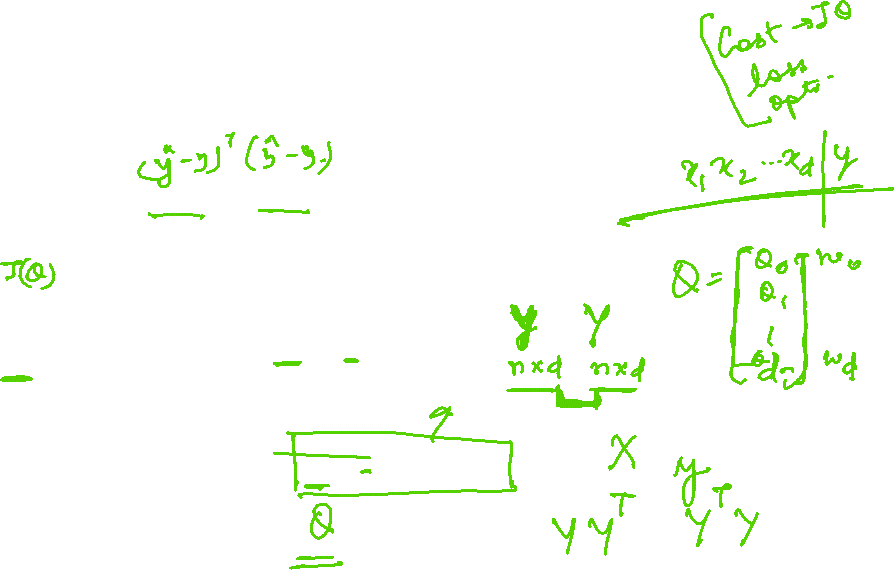 Cost → Jθ
loss
opti
(ŷ - y)ᵀ (ŷ - y)
x₁ x₂ ... x_d | y
J(θ)
θ = [θ₀ w₀
θ₁
θd] w_d
y y
n×d n×d
X y
θ
y yᵀ yᵀ y